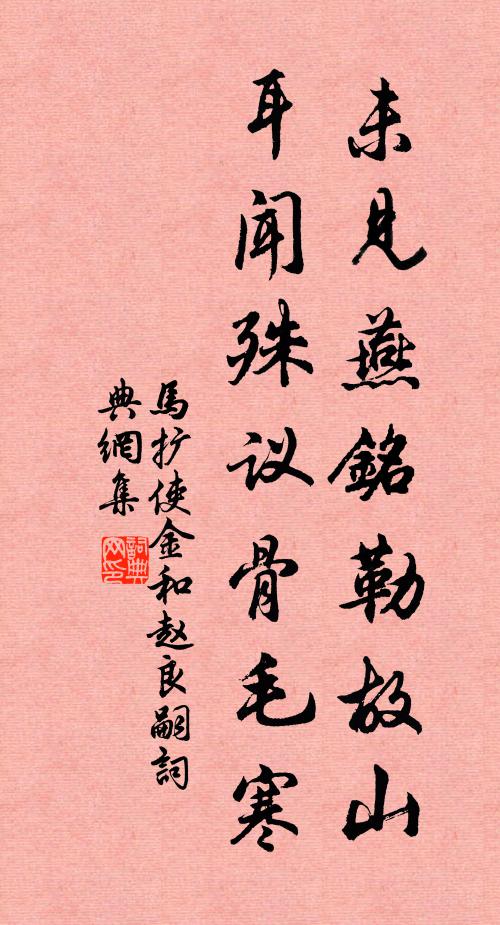 未见燕銘勒故山
耳闻殊议骨毛寒
馬扩使金和赵良嗣詞
典網集
詞典
网印